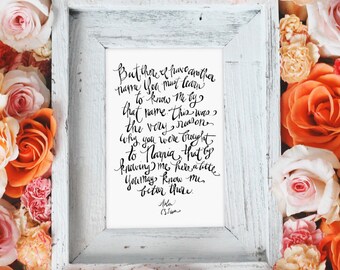 But there I have another
name. You must learn
to know me by
that name. This was
the very reason
why you were brought
to Narnia, that by
knowing me here a little
you may know me
better there